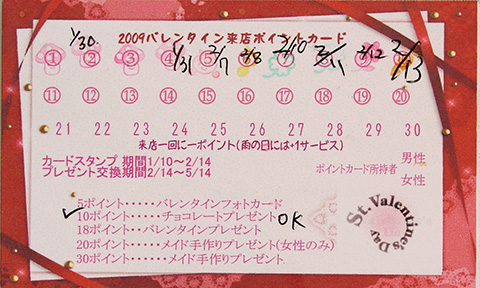 2009バレンタイン来店ポイントカード
1/30. 1/31 2/7 2/8 2/10 2/11 2/12 2/13
① ② ③ ④ ⑤ ⑥ ⑦ ⑧ ⑨ ⑩
⑪ ⑫ ⑬ ⑭ ⑮ ⑯ ⑰ ⑱ ⑲ ⑳
21 22 23 24 25 26 27 28 29 30
来店一回に一ポイント(雨の日には+1サービス)
カードスタンプ 期間1/10~2/14
プレゼント交換期間2/14~5/14
ポイントカード所持者 男性
女性
5ポイント・・・・・バレンタインフォトカード
✓10ポイント・・・・・チョコレートプレゼント OK
18ポイント・・バレンタインプレゼント
20ポイント・・・・・メイド手作りプレゼント(女性のみ)
30ポイント・・・・・メイド手作りプレゼント
St. Valentine's Day